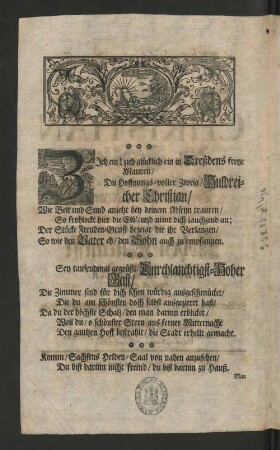 Zieh ein! zieh glücklich ein in Dreßdens frohe
Mauren/
Du Hoffnungs-voller Zweig/ Huldrei-
cher Christian/
Wie Belt und Sund anjetzt bey deinem Abseyn trauren/
So frohlockt hier die Elb/ und nimt dich jauchzend an;
Der Stücke Freuden-Gruß bezeigt die ihr Verlangen/
So wie den Vater eh/ den Sohn auch zu empfangen.
Sey tausendmal gegrüßt/ Durchlauchtigst-Hoher
Gast/
Die Zimmer sind für dich schon würdig ausgeschmücket/
Die du am schönsten doch selbst ausgezieret hast/
Da du der höchste Schatz/ den man darinn erblicket/
Weil du/ o schönster Stern aus ferner Mitternacht
Den gantzen Hoff bestrahlt/ die Stadt erhellt gemacht.
Komm/ Sachsens Helden-Saal von nahen anzusehen/
Du bist darinn nicht frembd/ du bist darinn zu Hauß.
Man